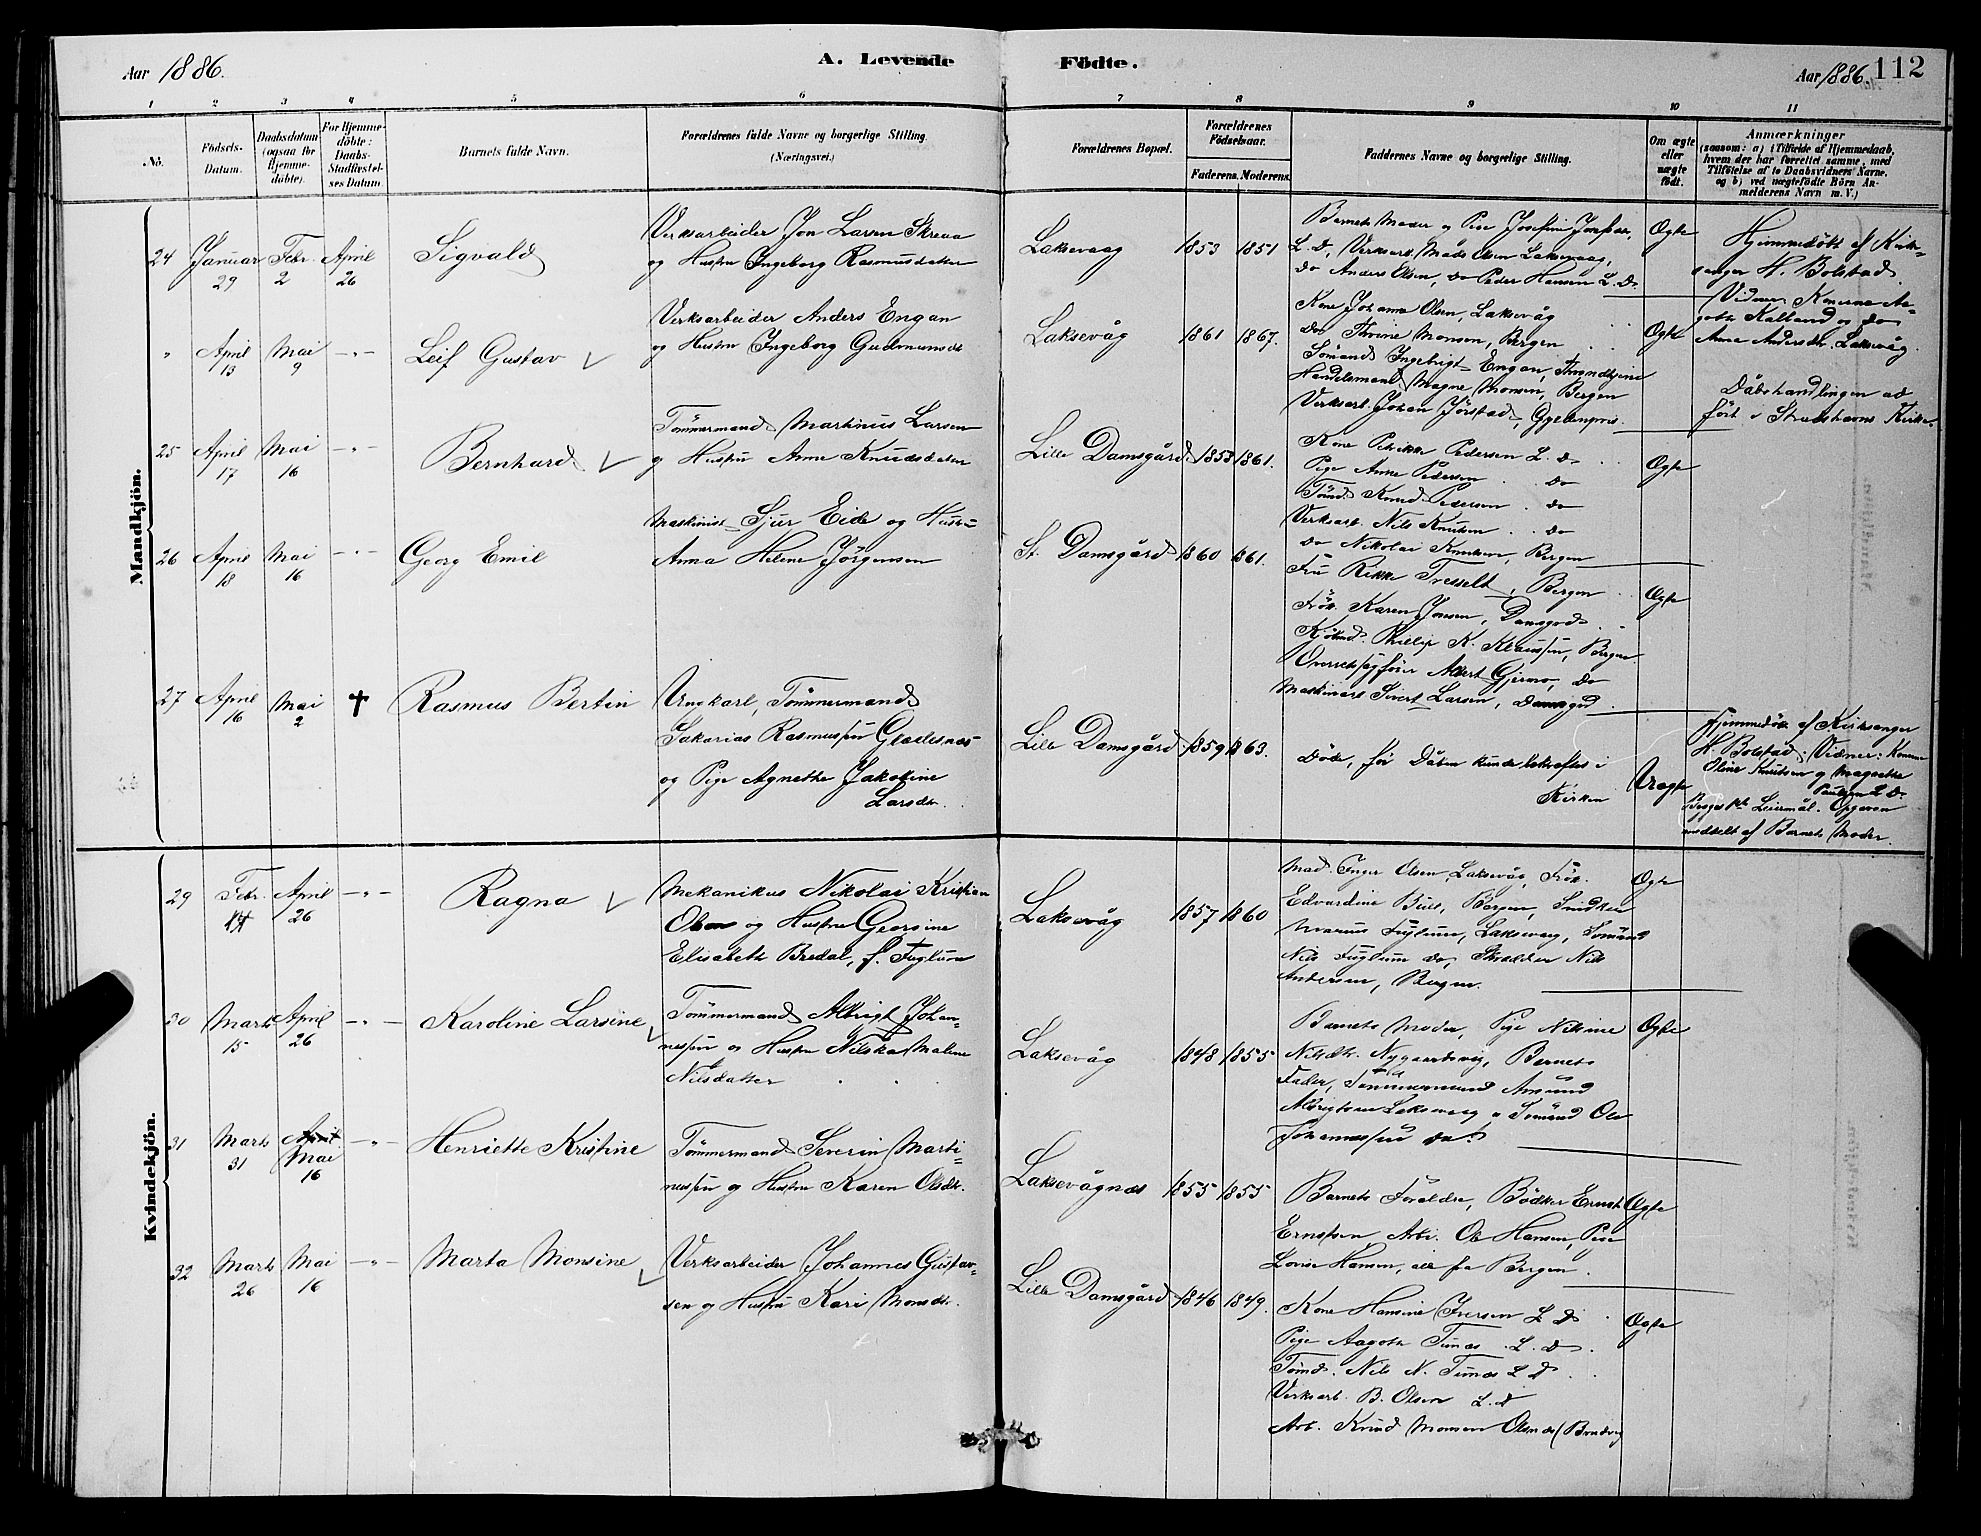 Aar 1886.
A. Levende
Fødte.
Aar 1886.
112
1 2 3 4 5 6 7 8 9 10 11
No.
Födsels-
Datum.
Daabsdatum
(ogsaa for
Hjemme-
döbte).
For Hjemme-
döbte:
Daabs-
Stadfæstel-
ses Datum
Barnets fulde Navn.
Forældrenes fulde Navne og borgerlige Stilling.
(Næringsvei.)
Forældrenes Bopæl.
Forældrenes
Födselsaar.
Faderens. Moderens.
Faddernes Navne og borgerlige Stilling.
Om ægte
eller
uægte
født.
Anmærkninger
(saasom: a) i Tilfælde af Hjemmedaab,
hvem der har forrettet samme, med
Tilföielse af to Daabsvidners Navne.
og b) ved uægtefödte Börn An-
melderens Navn m.V.)
Mandkjön.
24 Januar 29 Febr. 2 April 26
Sigvald
Verksarbeider Jon Larsen Skrena
og Hustru Ingeborg Rasmusdatter
Laksevaag 1853 1851
Barnets Moder og Pige Josefine
L. D., Verksarb. Mads Olsen Laksevaag,
do Anders Olsen, do Peder Hansen L. D.
Ægte
Hjemmedöbt af Kirke-
sanger H. Bolstad
Vidner Konerne Aa-
goth Kalland og do
Anna Andersdtr. Laksevåg.
" April 13 Mai 9 -"-
Leif Gustav
Verksarbeider Anders Engan
og Hustru Ingeborg Gudmunsdtr
Laksevåg 1861 1867.
Kone Johanne Olsen, Laksevåg
do Thrine Monsen, Bergen
Sömand Ingebrigt Engan, Throndhjem
Handelsmand Magne Monsen, Bergen
Verksarb. Johan Jörstad,
Ægte
Dåbshandlingen ud-
fört i Strudshavns Kirke.
25 April 17 Mai 16 -"-
Bernhard
Tömmermand Martinus Larsen
og Hustru Anne Knudsdatter
Lille Damsgård 1853 1861.
Kone Petrikke Pedersen L. D.
Pige Anne Pedersen do
Tömd. Knud Pedersen do
Verksarb. Nils Knutsen do
do Nikolai Knutsen, Bergen
Ægte
26 April 18 Mai 16 -"-
Georg Emil
Maskinist Sjur Eide og Hustru
Anna Helene Jörgensen
St. Damsgård 1860 1861.
Fru Rikke Tresselt, Bergen
Frök. Karen Jansen, Damsgård
Kjöbmd. Phillip K. Klaussen, Bergen
Albert Gjerno, do
Maskinarb. Sivert Larsen, Damsgd.
Ægte
27 April 16 Mai 2 †
Rasmus Bertin
Ungkarl, Tömmermand
Sakarias Rasmussen
og Pige Agnethe Jakobine
Larsdtr.
Lille Damsgård 1859 1863.
Döde, för Dåben kunde bekræftes i
Kirken
Uægte
Hjemmedöbt af Kirkesanger
H. Bolstad; Vidner: Konerne
Oline Knutsen og Magrethe
Paulsen L. D.
Begges 1ste Leiermål. Opgaven
meddelt af Barnets Moder.
Kvindekjön.
29 Febr. 14 April 26 -"-
Ragna
Mekanikus Nikolai Kristian
Olsen og Hustru Georgine
Elisabeth Bredal, f. Fuglum
Laksevåg 1857 1860
Mad. Inger Olsen, Laksevåg, Frök.
Edvardine Bull, Bergen, Snidker
Marius Fuglum, Laksevaag, Sömand
Nils Fuglum do, Skrædder Nils
Andersen, Bergen.
Ægte
30 Marts 15 April 26 -"-
Karoline Larsine
Tömmermand Albrigt Johan-
nessen og Hustru Nilska Malene
Nilsdatter
Laksevåg 1848 1855
Barnets Moder, Pige Nikine
Nilsdtr. Nygaardsvig, Barnets
Fader, Tömmermand Amund
Albrigtsen Laksevaag og Sömand Ole
Johannessen do.
Ægte
31 Marts 31 April Mai 16 -"-
Henriette Kristine
Tömmermand Severin Marti-
nussen og Hustru Karen Olsdtr.
Laksevågnæs 1855 1855
Barnets Forældre, Bödker Ernst
Ernstsen, Arb. Ole Hansen, Pige
Lovise Hansen, alle fra Bergen.
Ægte
32 Marts 26 Mai 16 -"-
Marta Monsine
Verksarbeider Johannes Gustav-
sen og Hustru Kari Monsdtr.
Lille Damsgård 1846 1849.
Kone Hansine Iversen L. D.
Pige Aagoth Timæs L. D.
Tömd. Nils N. Timæs L. D.
Verksarb. B. Olsen L. D
Arb. Knud Monsen
Ægte